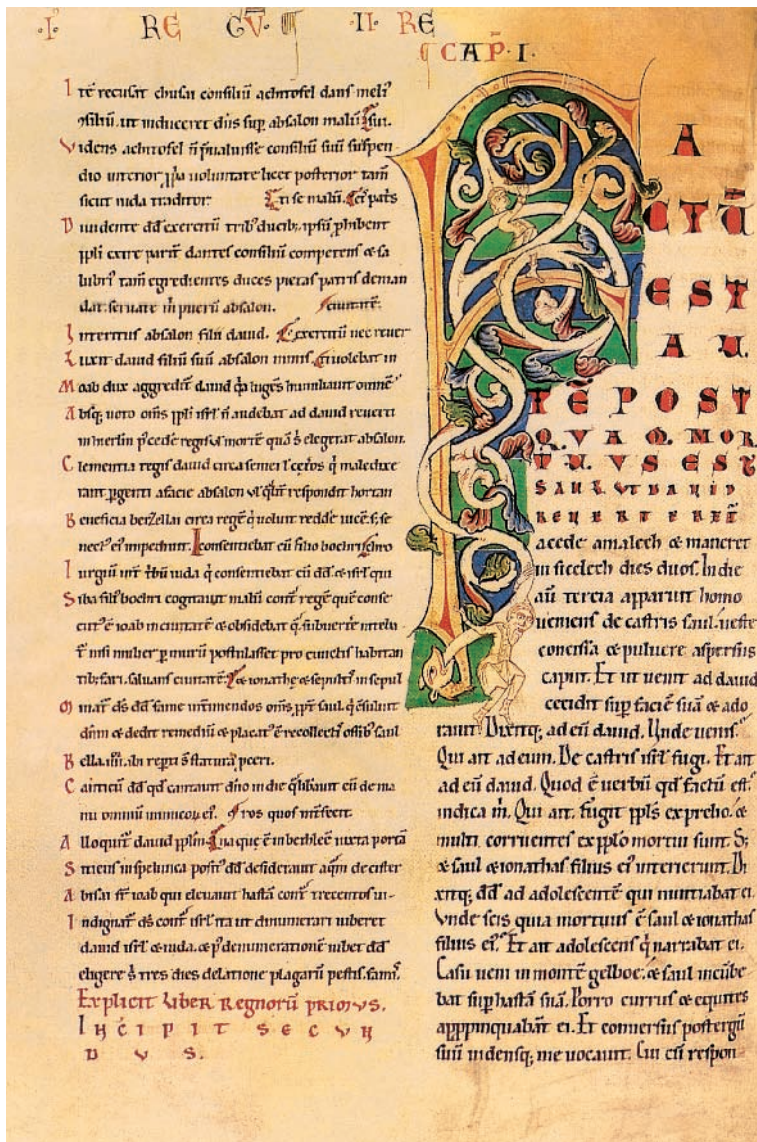 ·I· REGU II RE
CAP·I·
Itē recusat chusai consiliū achitofel dans meli⁹
ꝯsiliū. ut induceret dn̄s sup absalon malū sui.
Videns achitofel n̄ p̄ualuisse consiliū suū suspen
dio interior ꝓpa uoluntate licet posterior tam̄
sicut iuda traditor.
Diuidente dd̄ exercitū trib⁹ ducib; ipsū ꝓhibent
ppli exire parit̄ dantes consiliū competens & sa
lubri⁹ tam̄ egredientes duces pietas patris deman
dat. seruate m̄ puerū absalon. ciuitatē.
Interitus absalon filii dauid. exercitū nec reuer
Luxit dauid filiū suū absalon nimis. & uolebat in
Moab dux aggredit̄ dauid qa luges humiliauit omnē
Absq; uoto om̄s ppli isrl̄ n̄ audebat ad dauid reuerti
in hierlm̄ p̄cedē regis ul̄ mortē quā s̄ elegerat absalon.
Clementia regis dauid circa semei ul̄ ceteros q̄ maledixe
rant pergenti a facie absalon ul̄ qlit̄ respondit hortan
Beneficia berzellai circa regē q̄ uoluit reddē uicē. s; se
nect⁹ ei⁹ impediuit. consentiebat cū filio bochri
Iurgiū int̄ tbū iuda q̄ consentiebat cū dd̄ & isrl̄ qui
Siba fili⁹ bochri cogitauit malū cont̄ regē quē conse
cut⁹ ē ioab in ciuitatē & obsidebat q̄ subuertē intelu
t̄ nisi mulier p murū postulasset pro cunctis habitan
tib; fari. saluans ciuitatē. & ionathę & sepulti⁹ in sepul
ds̄ dd̄ fame om̄s. ppt̄ saul. q̄ esiluit
dn̄m & dedit remediū & placat⁹ ē recollecti⁹ ossib; saul
Bella .iiii. ubi repta s̄ statura pceri.
Canticū dd̄ qd̄ cantauit dn̄o in die q̄ libauit eū de ma
nu omniū inimicoꝝ ei⁹. uros quos int̄fecit.
Alloquit̄ dauid pplm̄. que ē in bethleē iuxta portā
Sitiens in spelunca posit⁹ dd̄ desiderauit aqm̄ de cister
Abisai fr̄ ioab qui eleuauit hastā cont̄ trecentos ui-
Indignat̄ ds̄ cont̄ isrl̄ ita ut dinumerari iuberet
dauid isrl̄ & iuda. & p⁹ denumerationē iubet dd̄
eligere s̄ tres dies delatione plagarū pestis. fami⁹.
Explicit liber regnorū primus.
Incipit secun
dus.
FA
CTŪ
EST
AU
TĒ POST
QUAM MOR
TUUS EST
SAUL UT DAUID
REUERTERET
a cede amalech & maneret
in sicelech dies duos. In die
aū tercia apparuit homo
ueniens de castris saul. ueste
concissa & puluere aspersus
caput. Et ut uenit ad dauid
cecidit sup faciē suā & ado
rauit. Dixitq; ad eū dauid. Unde uenis?
Qui ait ad eum. De castris isrl̄ fugi. Et ait
ad eū dauid. Quod ē uerbū qd̄ factū est?
indica m̄. Qui ait. fugit ppls̄ ex prelio. &
multi corruentes ex pplo mortui sunt. S;
& saul & ionathas filius ei⁹ interierunt. Di
xitq; dd̄ ad adolescentē qui nuntiabat ei.
Unde scis quia mortuus ē saul & ionathas
filius ei⁹. Et ait adolescens q̄ narrabat ei.
Casu ueni in montē gelboe. & saul incūbe
bat sup hastā suā. Porro currus & equites
appinquabāt ei. Et conuersus postergū
suū uidensq; me uocauit. Cui cū respon